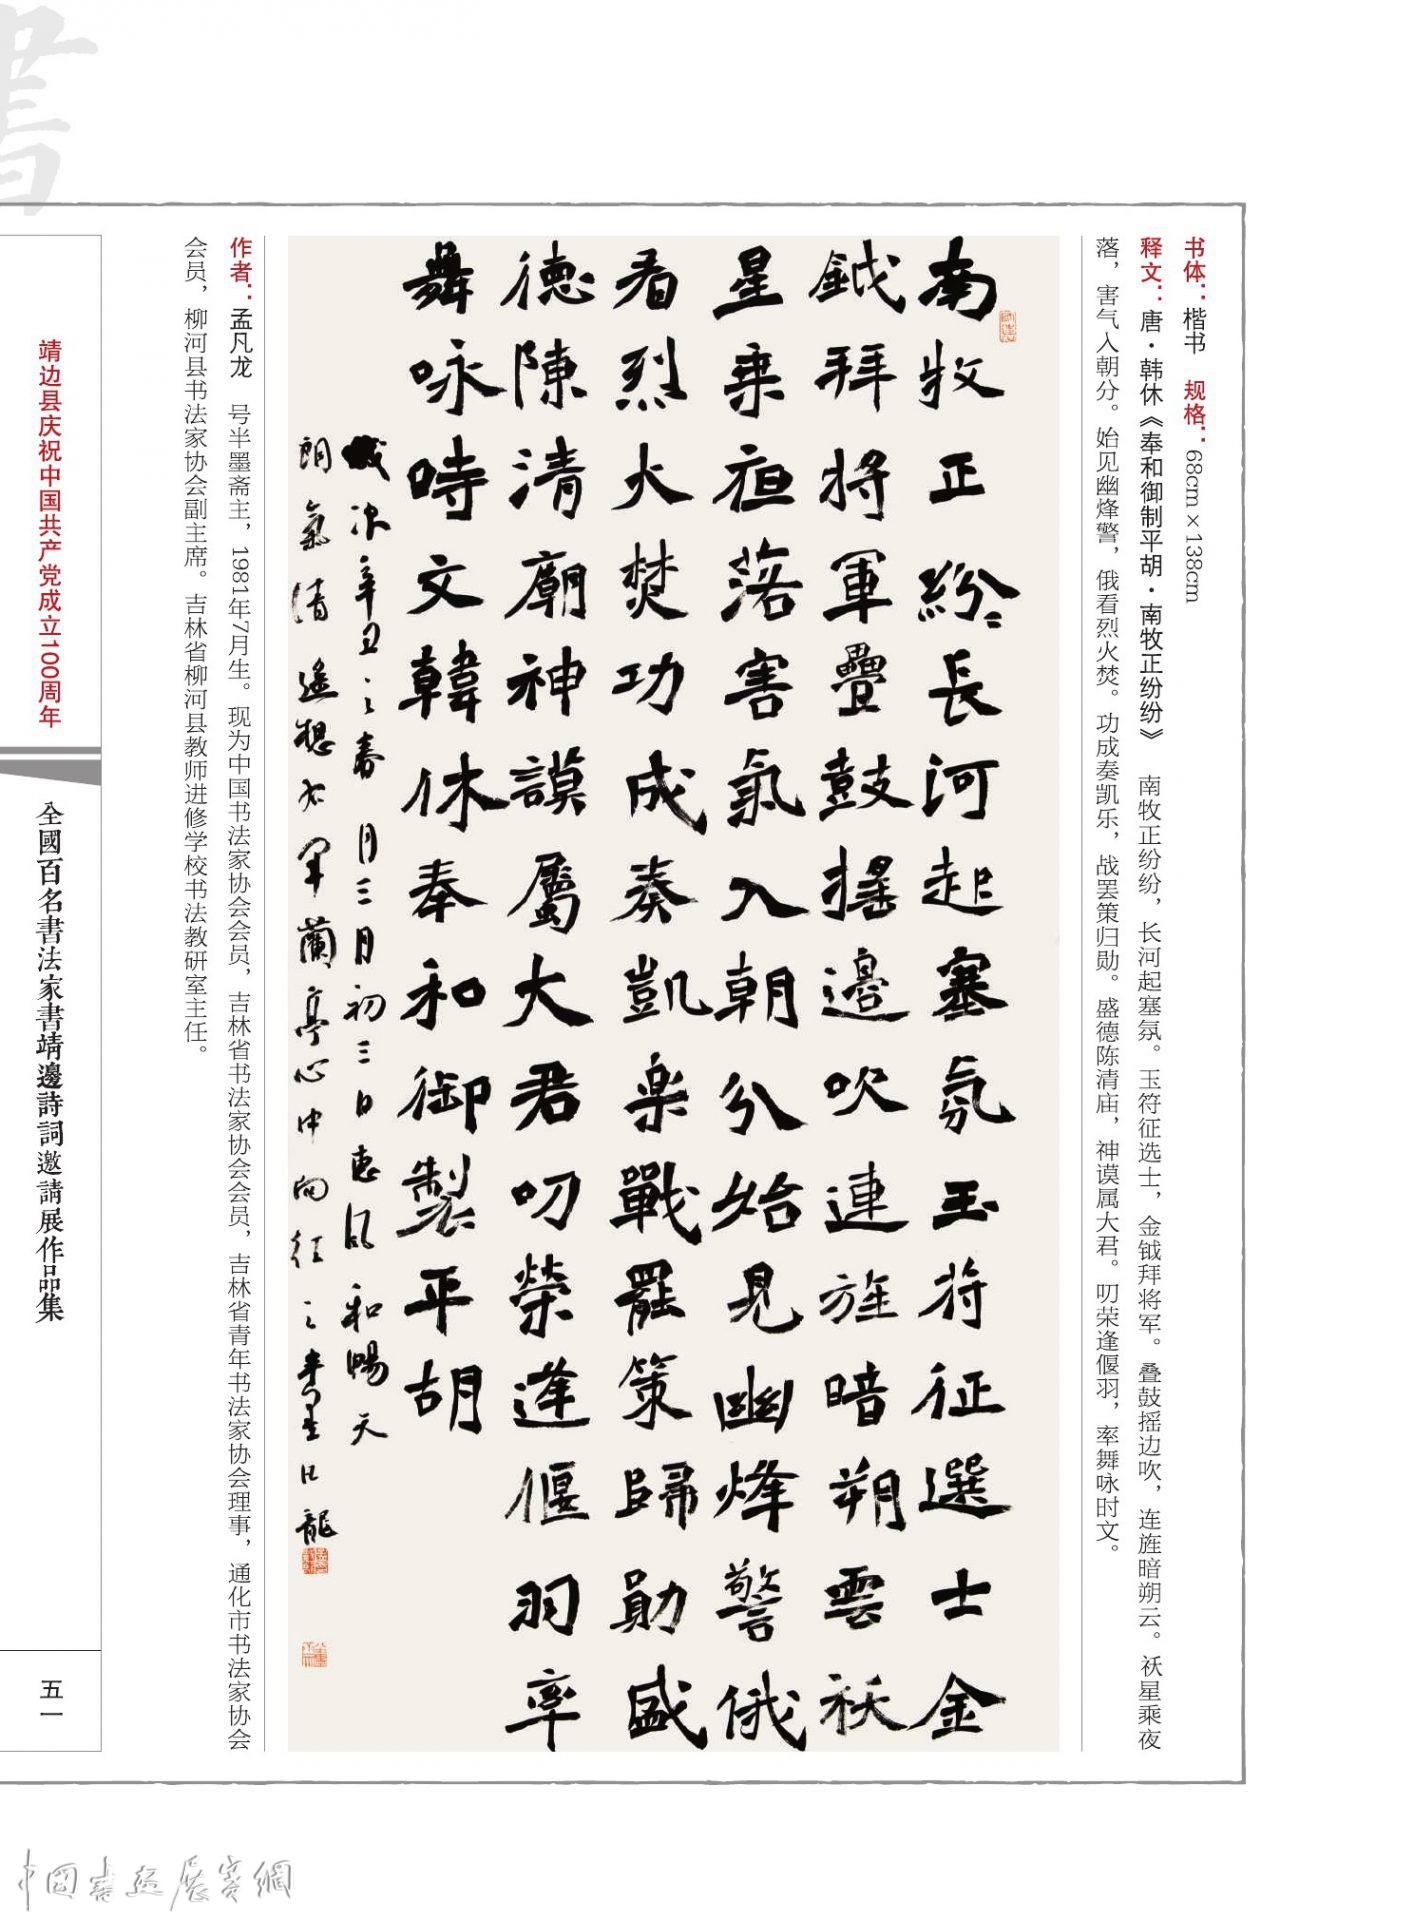 书体：楷书 规格：68cm×138cm
释文：唐·韩休《奉和御制平胡·南牧正纷纷》 南牧正纷纷，长河起塞氛。玉符征选士，金钺拜将军。叠鼓摇边吹，连旌暗朔云。祆星乘夜
落，害气入朝分。始见幽烽警，俄看烈火焚。功成奏凯乐，战罢策归勋。盛德陈清庙，神谟属大君。叨荣逢偃羽，率舞咏时文。
南牧正紛〻長河起塞氛玉符征選士金
鉞拜將軍疊鼓搖邊吹連旌暗朔雲祆
星乗夜落害氣入朝分始見幽烽警俄
看烈火焚功成奏凱楽戰罷策歸勛盛
德陳清廟神謨屬大君叨榮逢偃羽率
舞咏時文韓休奉和御製平胡
歲次辛丑之春月三月初三日惠風和暢天
朗氣清遥想右軍蘭亭心中向往之半墨凡龍
作者：孟凡龙 号半墨斋主，1981年7月生。现为中国书法家协会会员，吉林省书法家协会会员，吉林省青年书法家协会理事，通化市书法家协会
会员，柳河县书法家协会副主席。吉林省柳河县教师进修学校书法教研室主任。
書
靖边县庆祝中国共产党成立100周年
全國百名書法家書靖邊詩詞邀請展作品集
五一
中國書畫展賽網